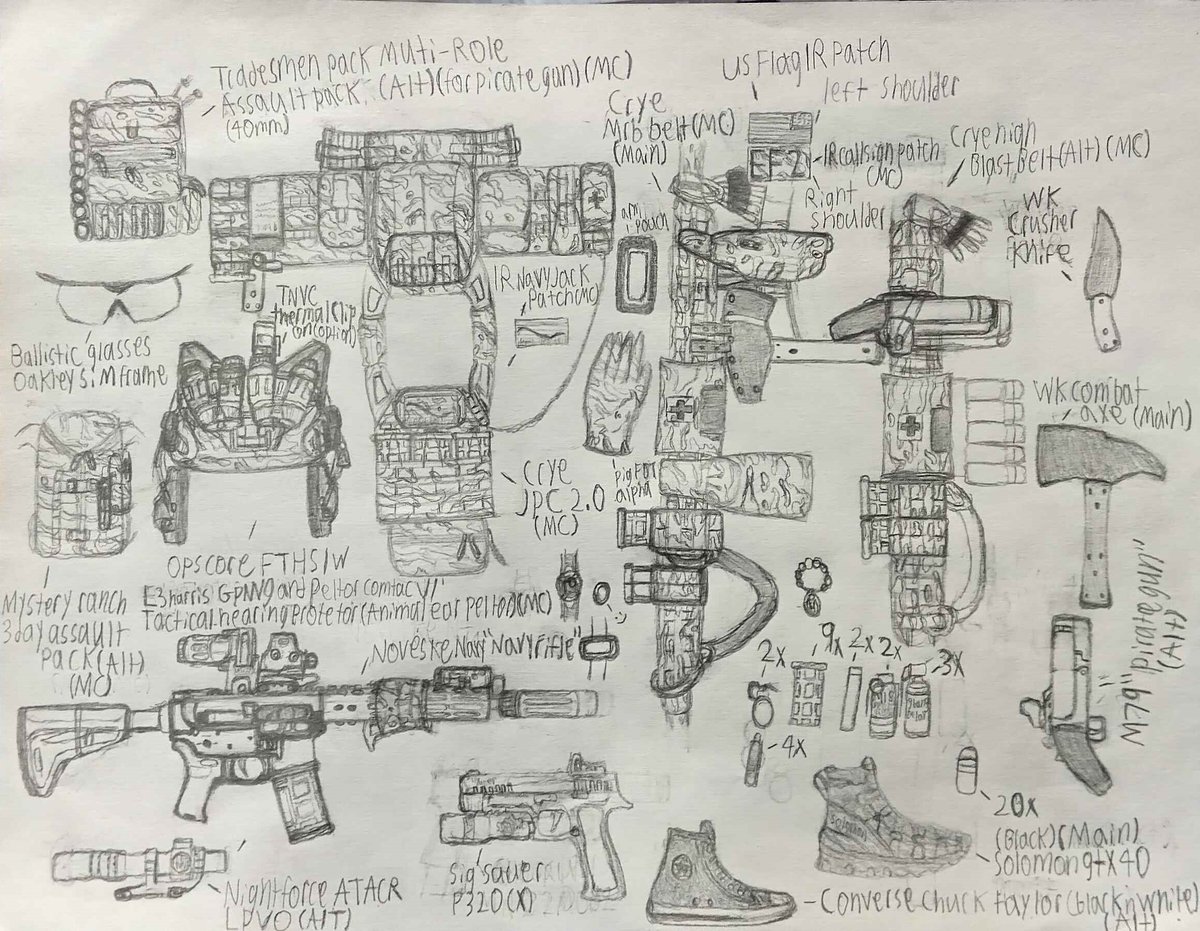 Tradesmen pack Multi-Role
Assault pack. (Alt)(for pirate gun)(MC)
(40mm)
US Flag IR Patch
left shoulder
Crye
Mrb belt (MC)
(Main)
IR callsign patch
(MC)
Right
shoulder
Crye high
Blast Belt (Alt) (MC)
WK
Crusher
Knife
arm
pouch
IR Navy Jack
Patch (MC)
TNVC
thermal clip
(on option)
Ballistic glasses
Oakley SI M frame
WK combat
axe (Main)
Pig FDT
alpha
Crye
JPC 2.0
(MC)
Opscore FTHS/W
E3 harris GPNVG and Peltor comtac VI
Tactical hearing Protetor (Animal ear peltor) (MC)
Mystery ranch
3 day assault
pack (Alt)
(MC)
Noveske Navy "Navy rifle"
2x
9x
2x
2x
3x
4x
M79 "pirate gun"
(Alt)
20x
(Black) (Main)
Solomon gtx 40
Solomon
Nightforce ATACR
LPVO (AlT)
Sig sauer
P320 (X)
Converse chuck taylor (black n white)
(Alt)